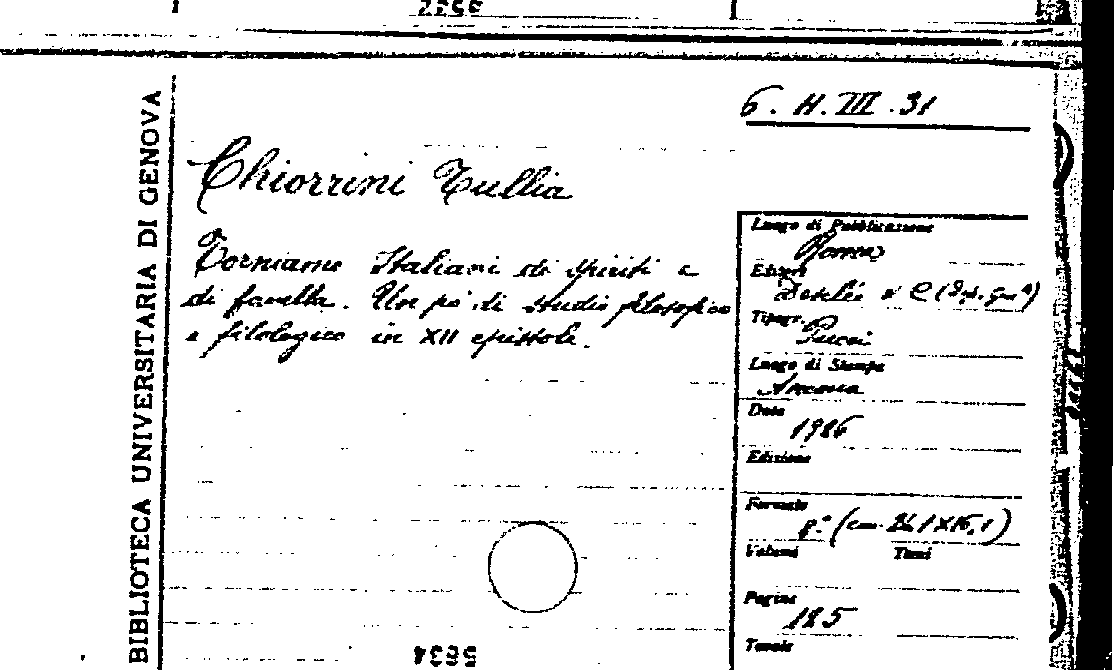 BIBLIOTECA UNIVERSITARIA DI GENOVA
6. H. III. 31
Chiorrini Tullia
Torniamo Italiani di spiriti e
di favella. Un pò di studio filosofico
e filologico in XII epistole.
Luogo di Pubblicazione
Roma
Editore
Desclée e C
Tipogr.
Pucci
Luogo di Stampa
Ancona
Data
1926
Edizione
Formato
8° (cm.
Volumi Tomi
Pagine
185
Tavole
5634